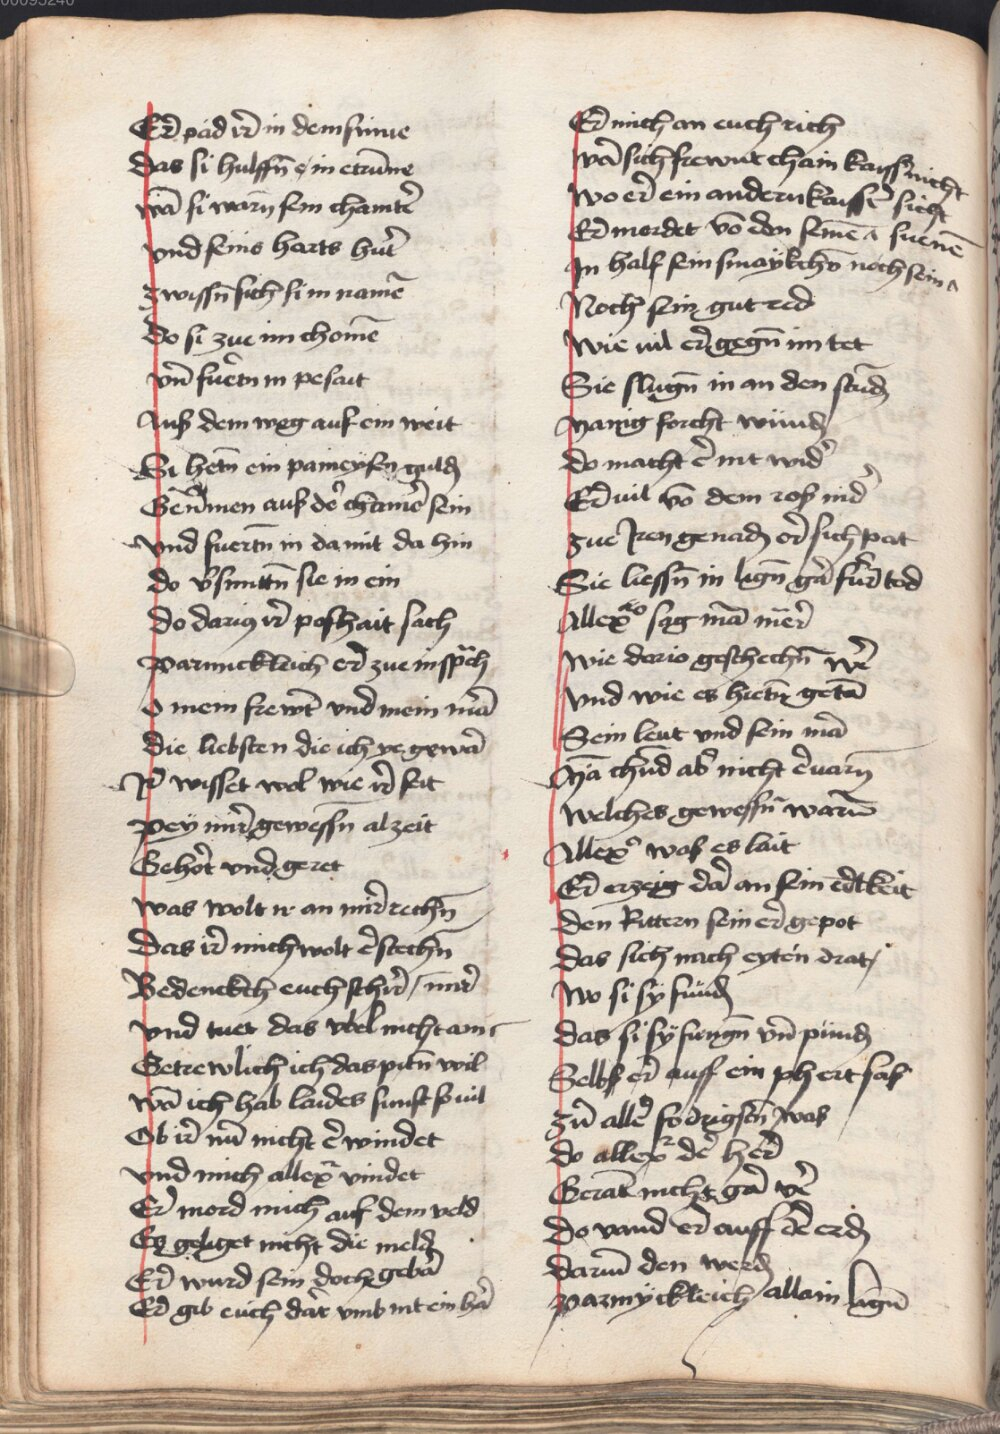 Er pad ir in dem sinne
das si hulffn ein etrunne
wā si warn sein chamrer
vnd seins harts huter
zwissn sich si in namē
do si zue im chomē
vn̄ fuertn in pesait
Auß dem weg auf ein weit
Si hetn ein paineysen guldn
Genūmen auß der chamer sein
vnd fuertn in damit da hin
do vsmittn sie in ein
do darius ir poshait sach
parmickleich er zue in sprach
O mein frewnt vnd mein mā
die liebsten die ich ye gewā
Ir wisset wol wie ir seit
pey mir gewessn alzeit
Gehort vnd geret
was wolt ir an mir rechn
das ir mich wolt erstechn
Bedencket euch schir / mir
vnd tuet das vbel nicht an
Getrewlich ich das pitn wil
wā ich hab laides sunst so uil
Ob ir nu nicht erwindet
vnd mich allexr vindet
Er mord mich auf dem veld
Es geliget nicht die meld
Er wurd sein doch gebar
Er gib euch dar vmb nit ein har
Er mich an euch rich
wā sich frewnt chain kayser nicht
wo er ein andern kayser sicht
Er mordet vō den seinē
In half sein smaykchn noch sein suenē
Noch sein gut red
wie uil er gegn im tet
Sie slugn in an den stundn
Manig forcht wundn
do macht er nit wider
Er uil vō dem roß nider
zue Iren genadn er sich pat
Sie liessn in lign gar fur tod
Allexro sag mā mer
wie dario geschechn wer
vnd wie es hietn getā
Sein leut vnd sein mā
Mā chund ab nicht eruarn
welches gewessn warn
Allexr was es lait
Er erzeig dar an sein edlkeit
den Rittern sein er gepot
das sich nach eyten drat
wo si sy fundn
das si sy fungn vn̄ pundn
Selbs er auff ein phert saß
zu aller fodrigstn was
do allexr der her
Geraит nicht gar ver
do vand er auff der erdn
darium den werdn
parmyckleich allain lign